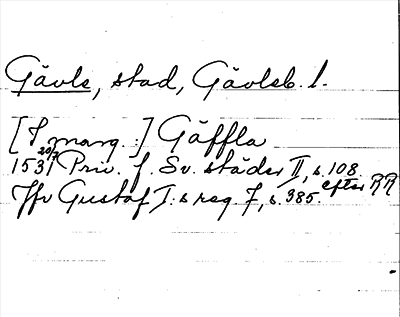 Gävle, stad, Gävleb. l.
[I marg.:] Gäffla
1531 20/7 Priv. f. Sv. städer II, s. 108. efter RR
Jfr Gustaf I:s reg 7, s. 385.